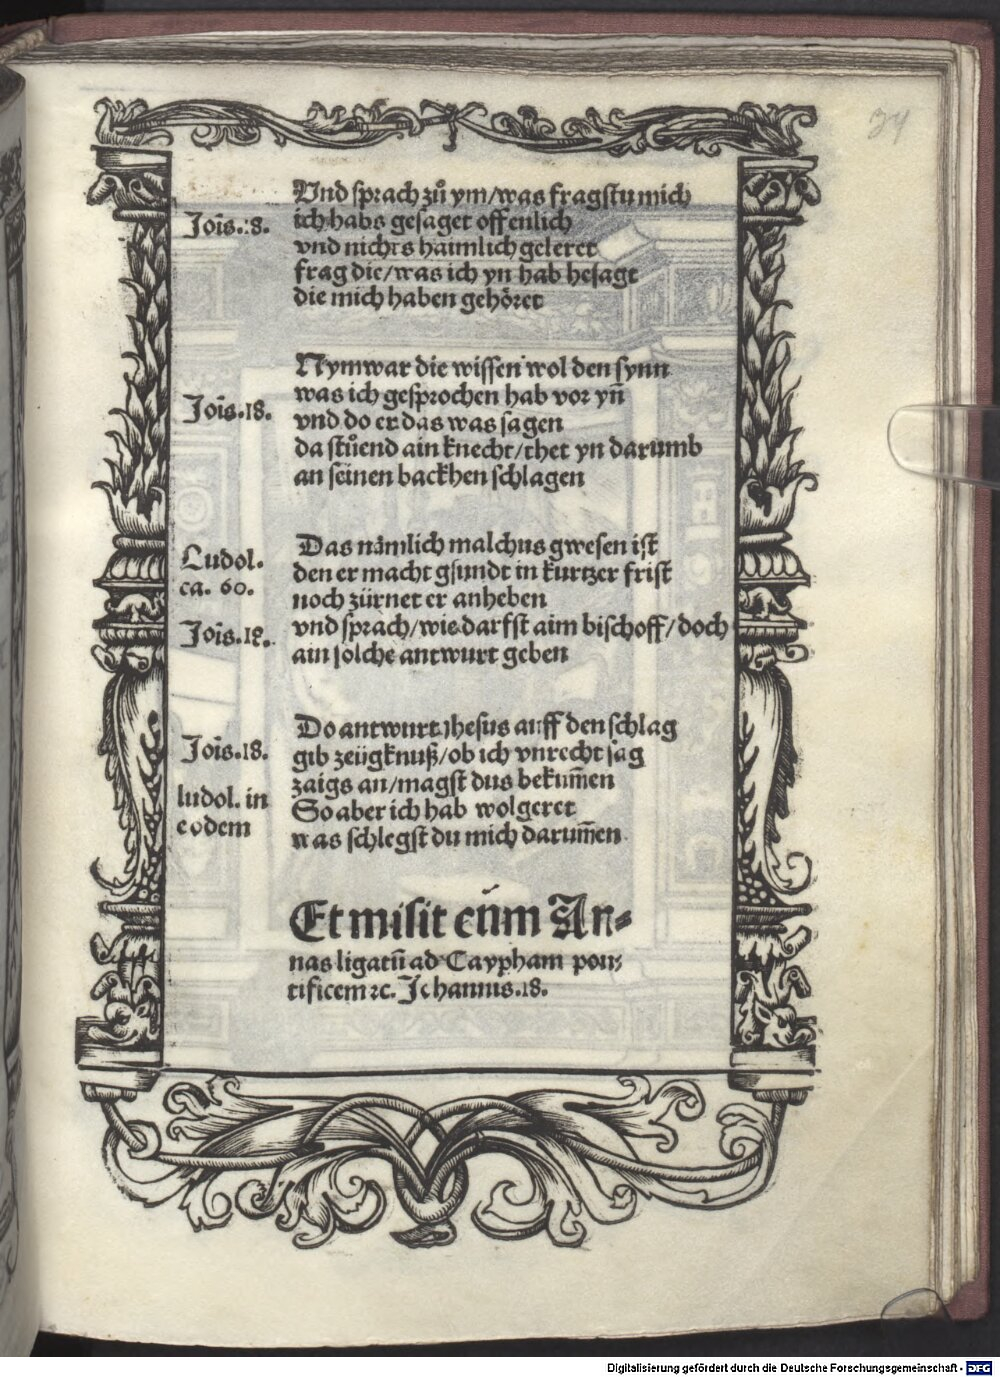 34
Vnd sprach zů ym/was fragstu mich
Jois.18.
ich habs gesaget offenlich
vnd nichts haimlich geleret
frag die/was ich yn hab hesagt
die mich haben gehöret
Nym war die wissen wol den synn
Jois.18.
was ich gesprochen hab vor yn̄
vnd do er das was sagen
da stůend ain knecht/thet yn darumb
an seinen backhen schlagen
Ludol.
ca. 60.
Das nämlich malchus gwesen ist
den er macht gsundt in kurtzer frist
noch zürnet er anheben
Jois.18.
vnd sprach/wie darfst aim bischoff/doch
ain solche antwurt geben
Do antwurt Jhesus auff den schlag
Jois.18.
gib zeügknuß/ob ich vnrecht sag
zaigs an/magst dus bekum̄en
ludol. in
eodem
So aber ich hab wol geret
was schlegst du mich darum̄en
Et misit eūm An-
nas ligatū ad Caypham pon-
tificem ꝛc. Johannis.18.
Digitalisierung gefördert durch die Deutsche Forschungsgemeinschaft - DFG